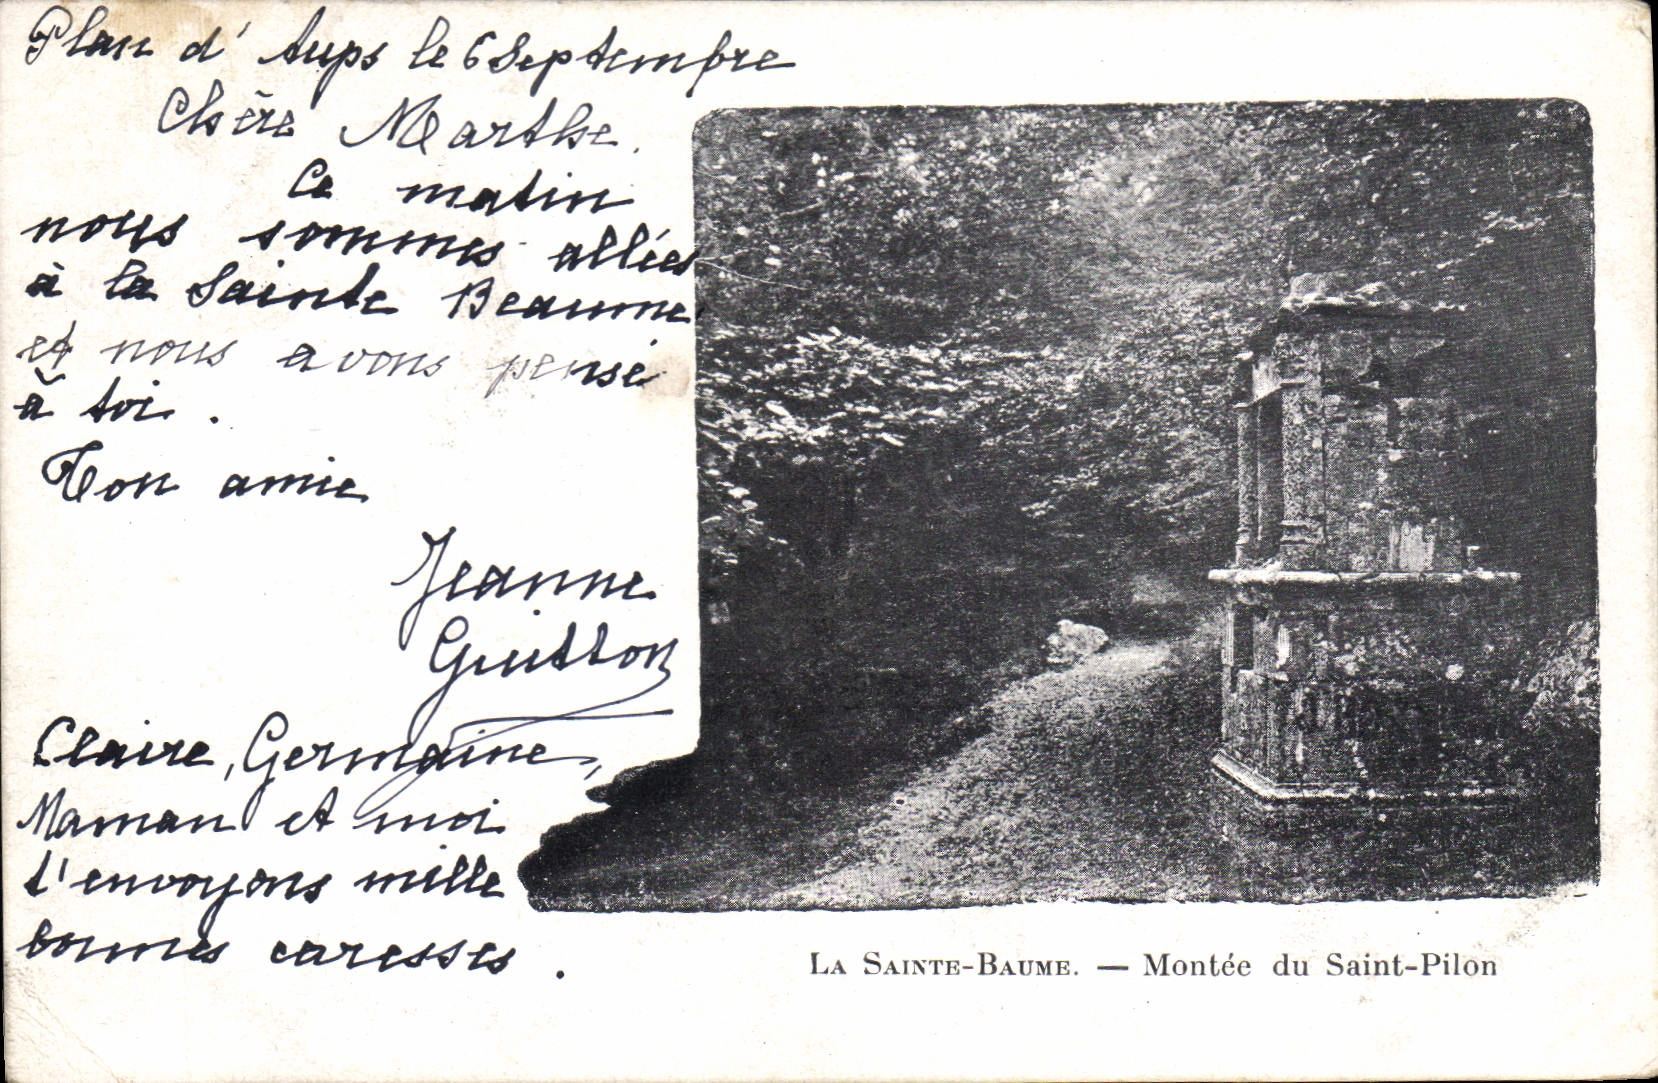 Plan d'Aups le 6 Septembre
Chère Marthe.
Ce matin
nous sommes allées
à la Sainte Beaume
et nous avons pensé
à toi.
Ton amie
Jeanne
Guitton
Claire, Germaine,
Maman et moi
t'envoyons mille
bonnes caresses.
LA SAINTE-BAUME. — Montée du Saint-Pilon